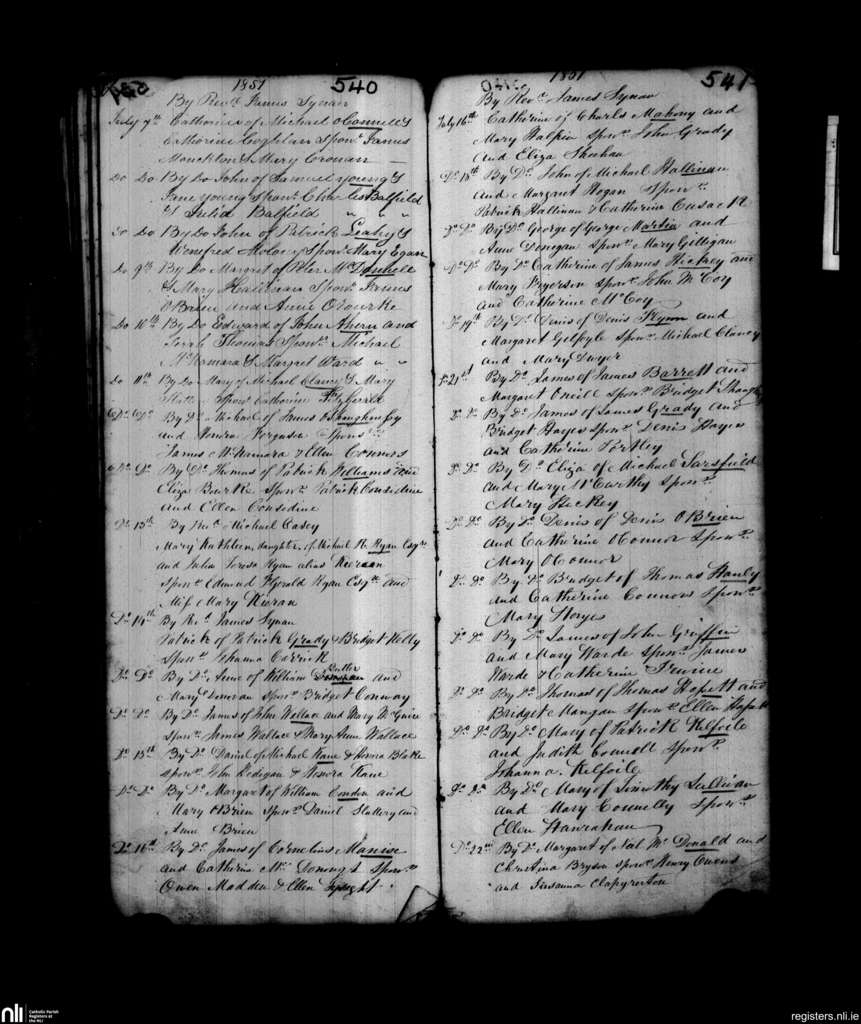 1851 540
By Revd. James Synan
July 7th Catherine of Michael OConnell &
Catherine Coghlan Sponrs. James
Monckton & Mary Cronan
Do Do By Do John of Samuel Young &
Jane Young Sponrs. Charles Balfield
& Julia Balfield " " "
Do Do By Do John of Patrick Leahy &
Winefred Molony Sponrs. Mary Egan
Do 9th By Do Margret of Peter McDonnell
& Mary Hallinan Sponrs. James
OBrien and Anne ORourke
Do 10th By Do Edward of John Ahern and
Sarah Thomas Sponrs. Michael
McNamara & Margret Ward " "
Do 11th By Do Mary of Michael Clancy & Mary
Sponr. Catherine FitzGerrald
Do Do By Do Michael of James OShaughnessy
and Honora Ferguson Sponrs.
James McNamara & Ellen Connors
Do Do By Do Thomas of Patrick Williams and
Eliza Bourke Sponrs. Patrick Considine
and Ellen Considine
Do 13th By Michael Casey
Mary Kathleen, daughter of Michael R. Ryan Esqre
and Julia Teresa Ryan alias Kieran
Sponrs. Edmund FGerald Ryan Esqre and
Miss Mary Kieran
Do 14th By Revd. James Synan
Patrick of Patrick Grady & Bridget Kelly
Sponr. Johanna Carrick
Butler
Do Do By Do Anne of William and
Mary Donovan Sponr. Bridget Conway
Do Do By Do James of John Wallace and Mary McGuire
Sponrs. James Wallace & Mary Anne Wallace
Do 15th By Do Daniel of Michael Kane & Honora Blake
Sponrs. John Hedigan & Honora Kane
Do Do By Do Margaret of William Condon and
Mary OBrien Sponrs. Daniel Slattery and
Anne Brien
Do 16th By Do James of Cornelius
and Catherine Sponrs.
Owen Madden & Ellen
1851 541
By Revd. James Synan
July 16th Catherine of Charles Mahony and
Mary Halpin Sponrs. John Grady
and Eliza Sheehan
Do 18th By Do John of Michael Hallinan
and Margret Hogan Sponrs.
Patrick Hallinan & Catherine Cusack
Do Do By Do George of George Martin and
Anne Donegan Sponr. Mary Gilligan
Do Do By Do Catherine of James Hickey and
Mary Fryerson Sponrs. John McCoy
and Catherine McCoy
Do 19th By Do Denis of Denis Flynn and
Margaret Gilfoyle Sponrs. Michael Clancy
and Mary Dwyer
Do 21st By Do James of James Barrett and
Margaret Oneill Sponr. Bridget
Do Do By Do James of James Grady and
Bridget Hayes Sponrs. Denis Hayes
and Catherine
Do Do By Do Eliza of Michael Sarsfield
and Mary McCarthy Sponr.
Mary Hickey
Do Do By Do Denis of Denis OBrien
and Catherine OConnor Sponr.
Mary OConnor
Do Do By Do Bridget of Thomas Hanly
and Catherine Connors Sponr.
Mary Hayes
Do Do By Do James of John Griffin
and Mary Warde Sponrs. James
Warde & Catherine Irwine
Do Do By Do Thomas of Thomas and
Bridget Mangan Sponr. Ellen
Do Do By Do Mary of Patrick Kelfoile
and Judith Connell Sponr.
Johanna Kelfoile
Do Do By Do Mary of Timothy Sullivan
and Mary Connelly Sponr.
Ellen Hanrahan
Do 22nd By Do Margaret of Neal McDonald and
Christina Bryson Sponrs. Henry Owens
and Susanna Clapyerton
nli Catholic Parish
Registers at
the NLI
registers.nli.ie